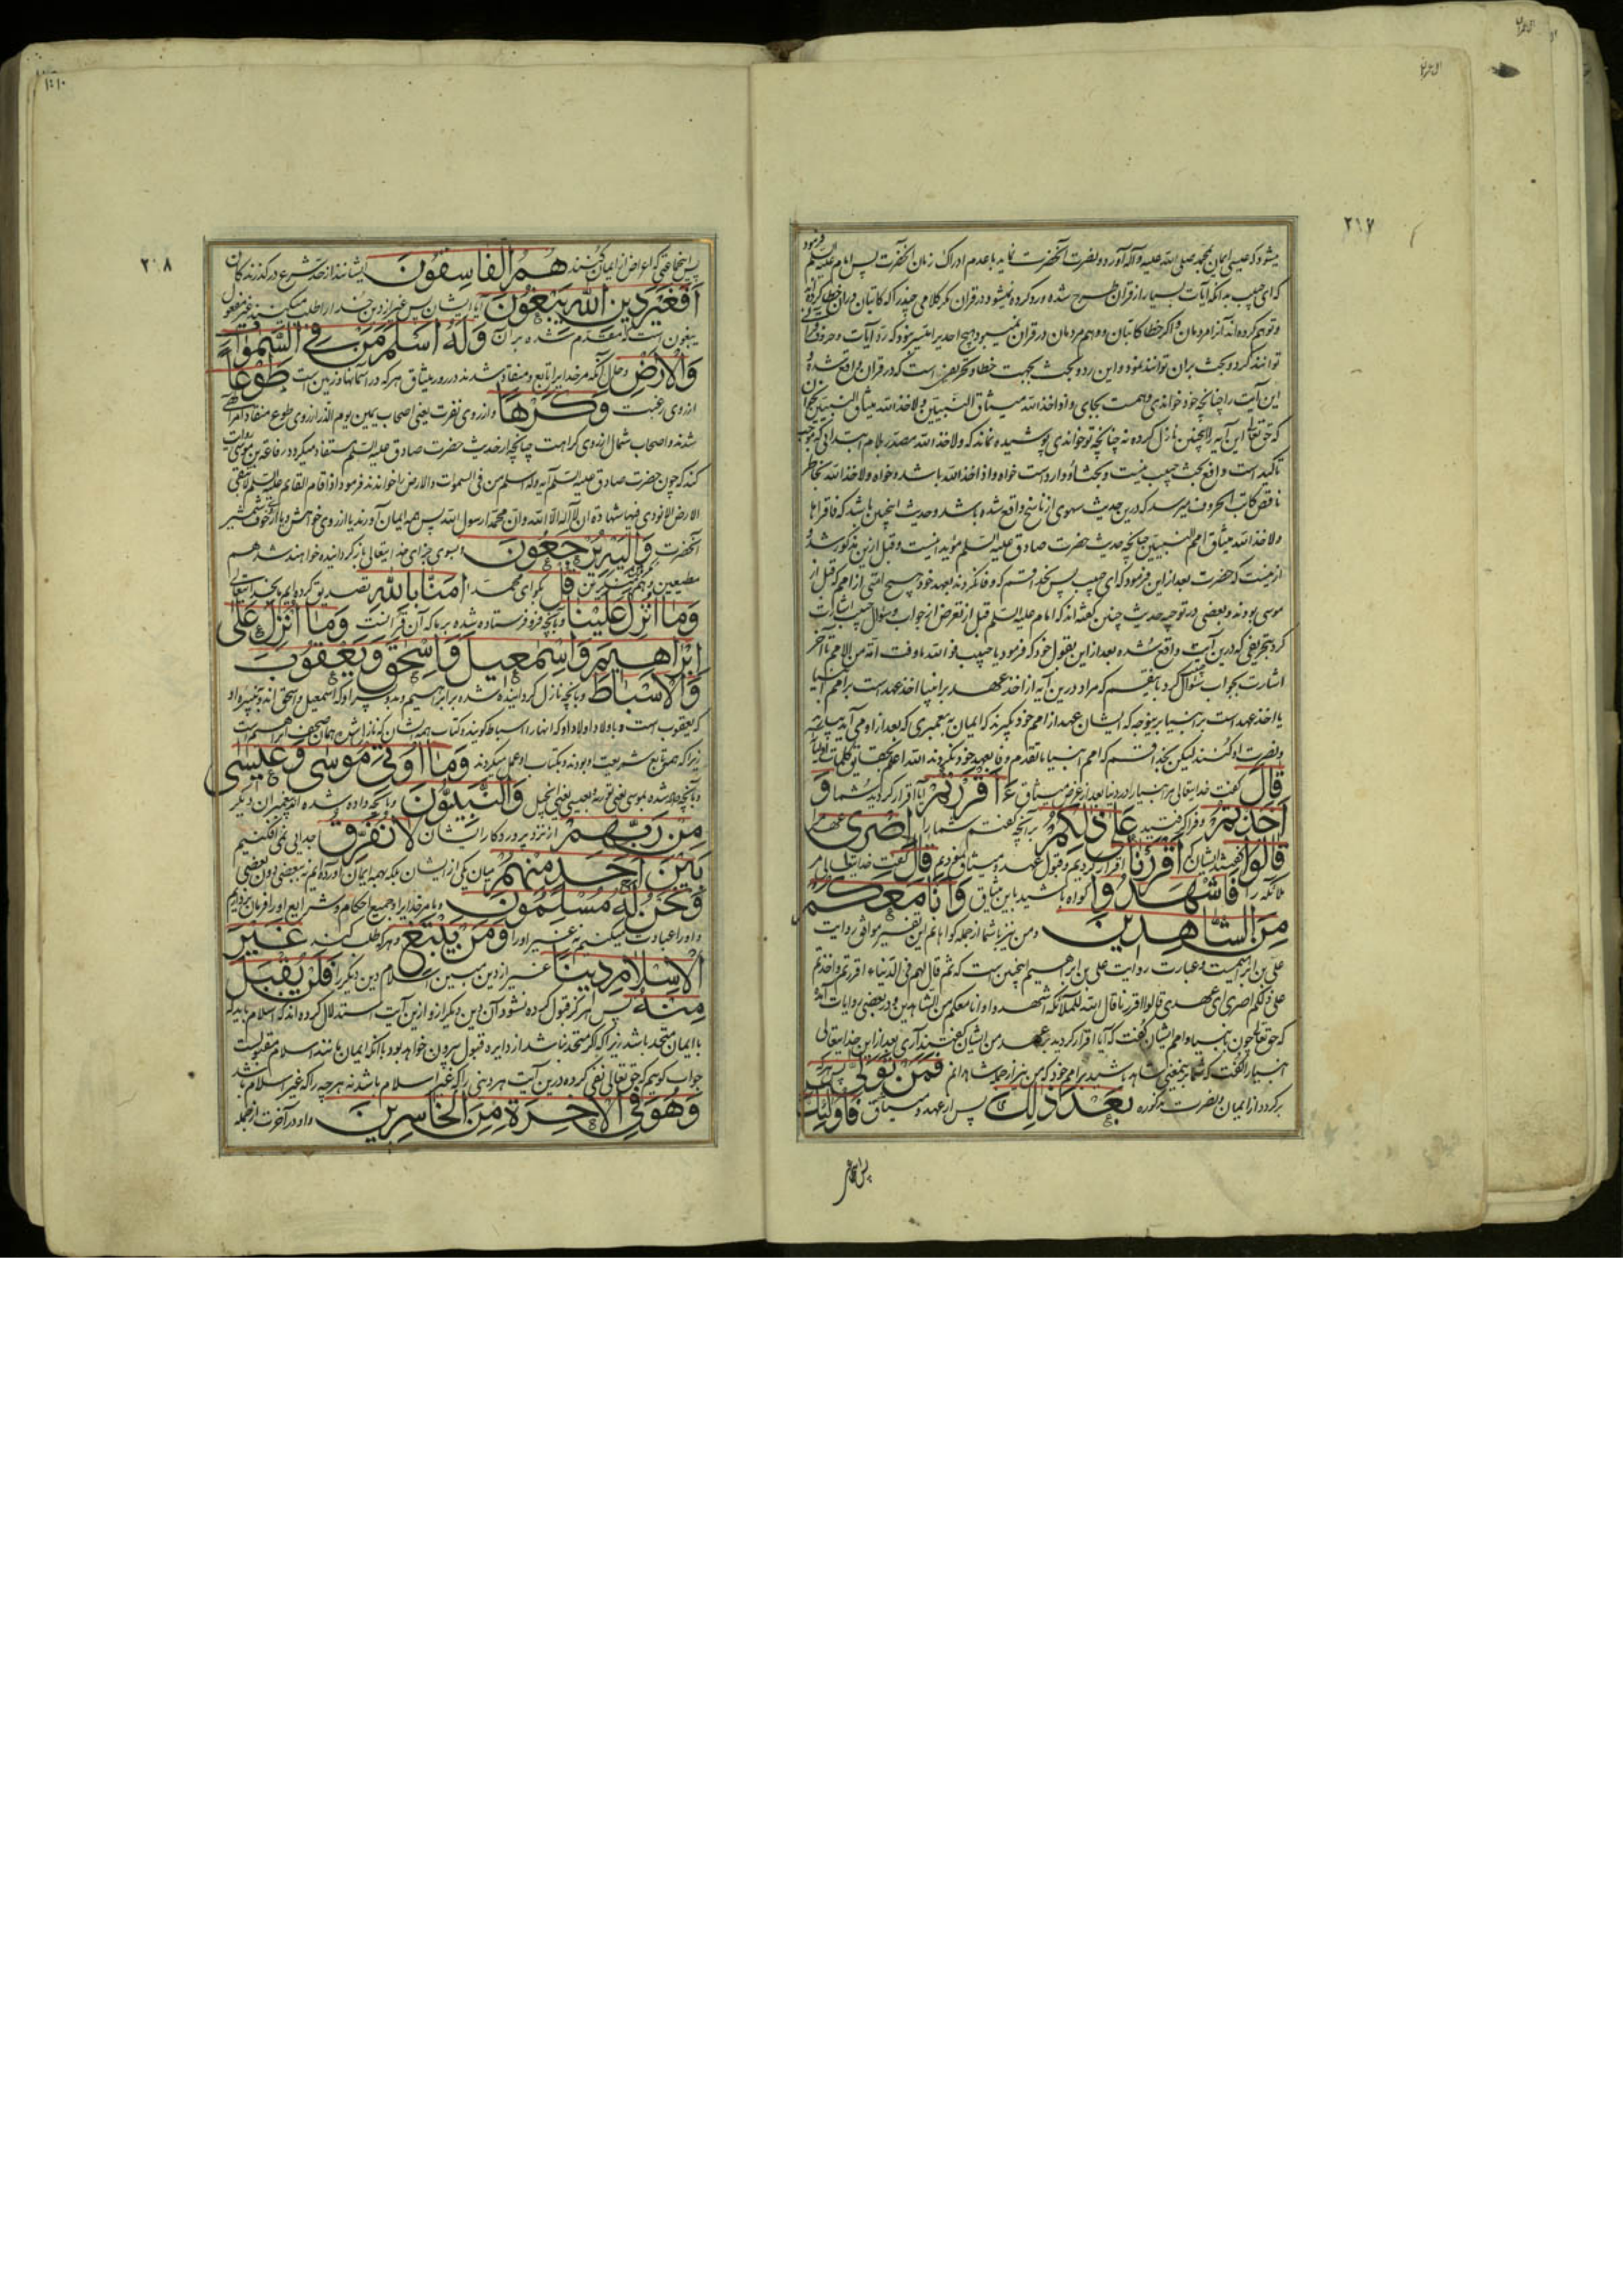 میشود که عیسی ایمان بمحمد صلی الله علیه وآله آورده ونصرت آنحضرت نماید با عدم ادراک زمان آنحضرت پس امام علیه السلم فرمود
که ای حبیب بدانکه آیات بسیار از قرآن طرح شده
توانند کرد و بحث بران توانند نمود و این رد و بحث بجهت خطا و تحریفی است که در قرآن واقع شده
این آیت را چنانچه خود خواندی
که حق تعالی این آیه را اینچنین نازل کرده نه چنانچه تو خواندی پوشیده نماند که ولاخذ الله
تاکید است و دافع بحث حبیب نیست
ناقص کاتب الحروف میرسد که درین حدیث سهوی از ناسخ واقع شده باشد و حدیث اینچنین باشد که
ولاخذ الله میثاق امم النبیین چنانچه حدیث حضرت صادق علیه السلم مؤید اینست و قبل ازین مذکور شد و
ازینست که حضرت بعد از این فرمود که ای حبیب پس بخدا قسم که وفا نکردند بعهد خود هیچ امتی از امم که قبل از
موسی بودند و بعضی در توجیه حدیث چنین گفته‌اند که امام علیه السلم قبل از تعرض از جواب سؤال حبیب اشارت
کرد بتحریفی که درین آیت واقع شده بعد از این بقول خود که فرمود یا حبیب فوالله ما وفت امة من الامم تا آخر
اشارت بجواب سؤال کرد
یا اخذ عهد است بر انبیا
ونصرت او کنند لیکن بخدا قسم که امم انبیا ما تقدم وفا بعهد خود نکردند الله اعلم بحقایق کلمات اولیائه
قَالَ گفت خدایتعالی مر انبیا را در دنیا بعد از عرض میثاق ءَاَقْرَرْتُمْ آیا اقرار کردید شما وَ
اَخَذْتُمْ وفرا گرفتید عَلٰی ذٰلِکُمْ برآنچه گفتم شما را اِصْرِی عهد مرا
قَالُوا گفتند ایشان که اَقْرَرْنَا اقرار کردیم وقبول عهد ومیثاق نمودیم قَالَ گفت خدایتعالی مر
ملائکه را فَاشْهَدُوا گواه باشید باین میثاق وَاَنَا مَعَکُمْ
مِنَ الشَّاهِدِینَ ومن نیز با شما از جمله گواهانم این تفسیر موافق روایت
علی بن ابراهیمست وعبارت روایت علی بن ابراهیم اینچنین است که ثم قال لهم فی الدنیا ءاقررتم واخذتم
علی ذلکم اصری ای عهدی قالوا اقررنا قال الله للملائکه اشهدوا وانا معکم من الشاهدین ودر بعضی روایات آمده
که حق تعالی چون بانبیا وامم ایشان گفت که آیا اقرار کردید بعهد من ایشان گفتند آری بعد از این خدایتعالی
انبیا را گفت که شما برینمعنی شاهد باشید بر امم خود که من نیز از جمله شاهدانم فَمَنْ تَوَلّٰی پس هرکه
برگردد از ایمان ونصرت مذکوره بَعْدَ ذٰلِکَ پس از عهد ومیثاق فَاُولٰئِکَ
پس اینجماعتی
٢١٧
پس اینجماعتی که اعراض از ایمان کنند هُمُ الْفَاسِقُونَ ایشانند از حد شرع درگذرندگان
اَفَغَیْرَ دِینِ اللّٰهِ یَبْغُونَ آیا ایشان پس غیر از دین خدا را طلب میکنند غیر مفعول
یبغون است که مقدم شده بر آن وَلَهُ اَسْلَمَ مَنْ فِی السَّمٰوَاتِ
وَالْاَرْضِ وحال آنکه مر خدا را تابع و منقاد شدند در روز میثاق هرکه در آسمانها وزمین است طَوْعًا
از روی رغبت وَکَرْهًا واز روی نفرت یعنی اصحاب یمین یوم الذر از روی طوع منقاد امر الهی
شدند واصحاب شمال از روی کراهت چنانچه از حدیث حضرت صادق علیه السلم مستفاد میگردد رفاعة بن موسی روایت
کند که چون حضرت صادق علیه السلم آیه وله اسلم من فی السموات والارض را خواندند فرمود اذا قام القائم علیه السلم لا تبقی
الارض الا نودی فیها شهادة ان لا اله الا الله وان محمدا رسول الله پس همه ایمان آورند یا از روی خواهش ویا از خوف شمشیر
آنحضرت وَاِلَیْهِ یُرْجَعُونَ وبسوی جزای خدایتعالی بازگردانیده خواهند شد هم
مطیعین وهم منکرین قُلْ بگو ای محمد اٰمَنَّا بِاللّٰهِ تصدیق کرده‌ایم بخدایتعالی
وَمَا اُنْزِلَ عَلَیْنَا وبآنچه فرو فرستاده شده بر ما که آن قرآنست وَمَا اُنْزِلَ عَلٰی
اِبْرٰاهِیمَ وَاِسْمٰعِیلَ وَاِسْحٰقَ وَیَعْقُوبَ
وَالْاَسْبَاطِ وبآنچه نازل گردانیده شده بر ابراهیم و بدو پسر او که اسمعیل واسحق‌اند وبنبیره او
که یعقوب است وباولاد اولاد او که آنها را اسباط گویند وکتاب همه ایشان که نازل شده همان صحف ابراهیم است
زیرا که همه تابع شریعت او بودند وبکتاب او عمل میکردند وَمَا اُوتِیَ مُوسٰی وَعِیسٰی
وبآنچه داده شده بموسی یعنی توریة وبعیسی یعنی انجیل وَالنَّبِیُّونَ وبآنچه داده شده پیغمبران دیگر
مِنْ رَبِّهِمْ از نزد پروردگار ایشان لَا نُفَرِّقُ جدایی نمی افکنیم
بَیْنَ اَحَدٍ مِنْهُمْ میان یکی از ایشان بلکه بهمه ایمان آورده‌ایم نه ببعضی دون بعضی
وَنَحْنُ لَهُ مُسْلِمُونَ وما مر خدا را در جمیع احکام وشرایع او را فرمان برداریم
واو را عبادت میکنیم نه غیر او را وَمَنْ یَبْتَغِ وهرکه طلب کند غَیْرَ
الْاِسْلَامِ دِینًا غیر از دین مبین اسلام دین دیگر را فَلَنْ یُقْبَلَ
مِنْهُ پس هرگز قبول کرده نشود آن دین دیگر از او ازین آیت استدلال کرده‌اند که اسلام باید که
با ایمان متحد باشد زیرا که اگر متحد نباشد از دایره قبول بیرون خواهد بود با آنکه ایمان مانند اسلام مقبولست
جواب گوییم که حق تعالی نفی کرده درین آیت هر دینی را که غیر اسلام باشد نه هرچه را که غیر اسلام باشد
وَهُوَ فِی الْاٰخِرَةِ مِنَ الْخَاسِرِینَ واو در آخرت از جمله
٢٠٨